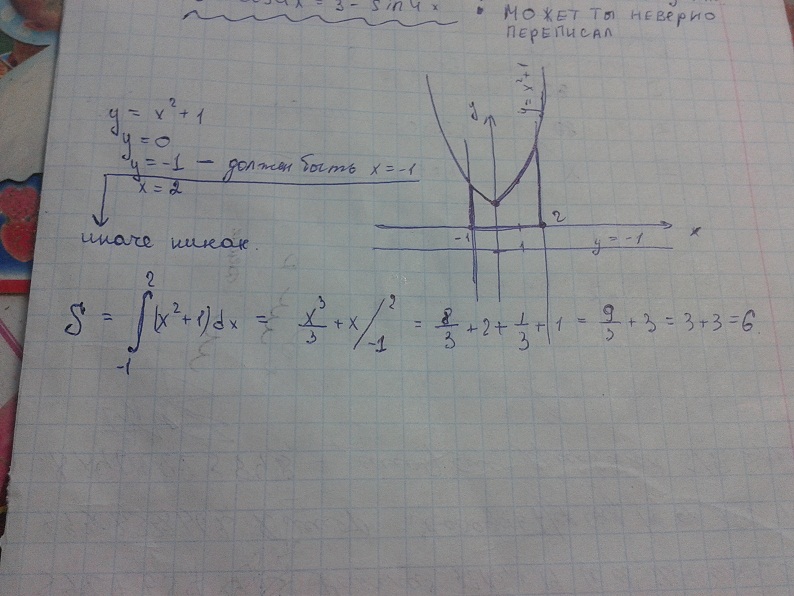 = 3 - sin 4x
• МОЖЕТ ТЫ НЕВЕРНО
ПЕРЕПИСАЛ
y = x² + 1
y = 0
y = -1 — должен быть x = -1
x = 2
иначе никак.
y
y = x² + 1
-1
2
1
x
y = -1
S = ∫₋₁² (x² + 1) dx = x³/3 + x /₋₁² = 8/3 + 2 + 1/3 + 1 = 9/3 + 3 = 3 + 3 = 6.